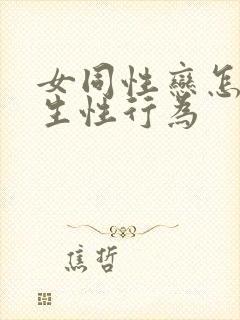 女同性戀怎
生性行為
焦哲